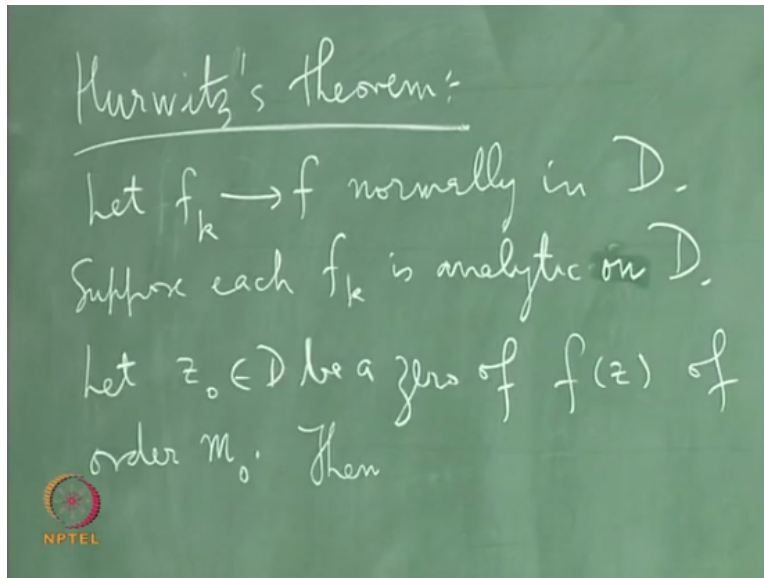 Hurwitz's theorem:-
Let f_k → f normally in D.
Suppose each f_k is analytic on D.
Let z_0 ∈ D be a zero of f(z) of
order m_0. Then
NPTEL